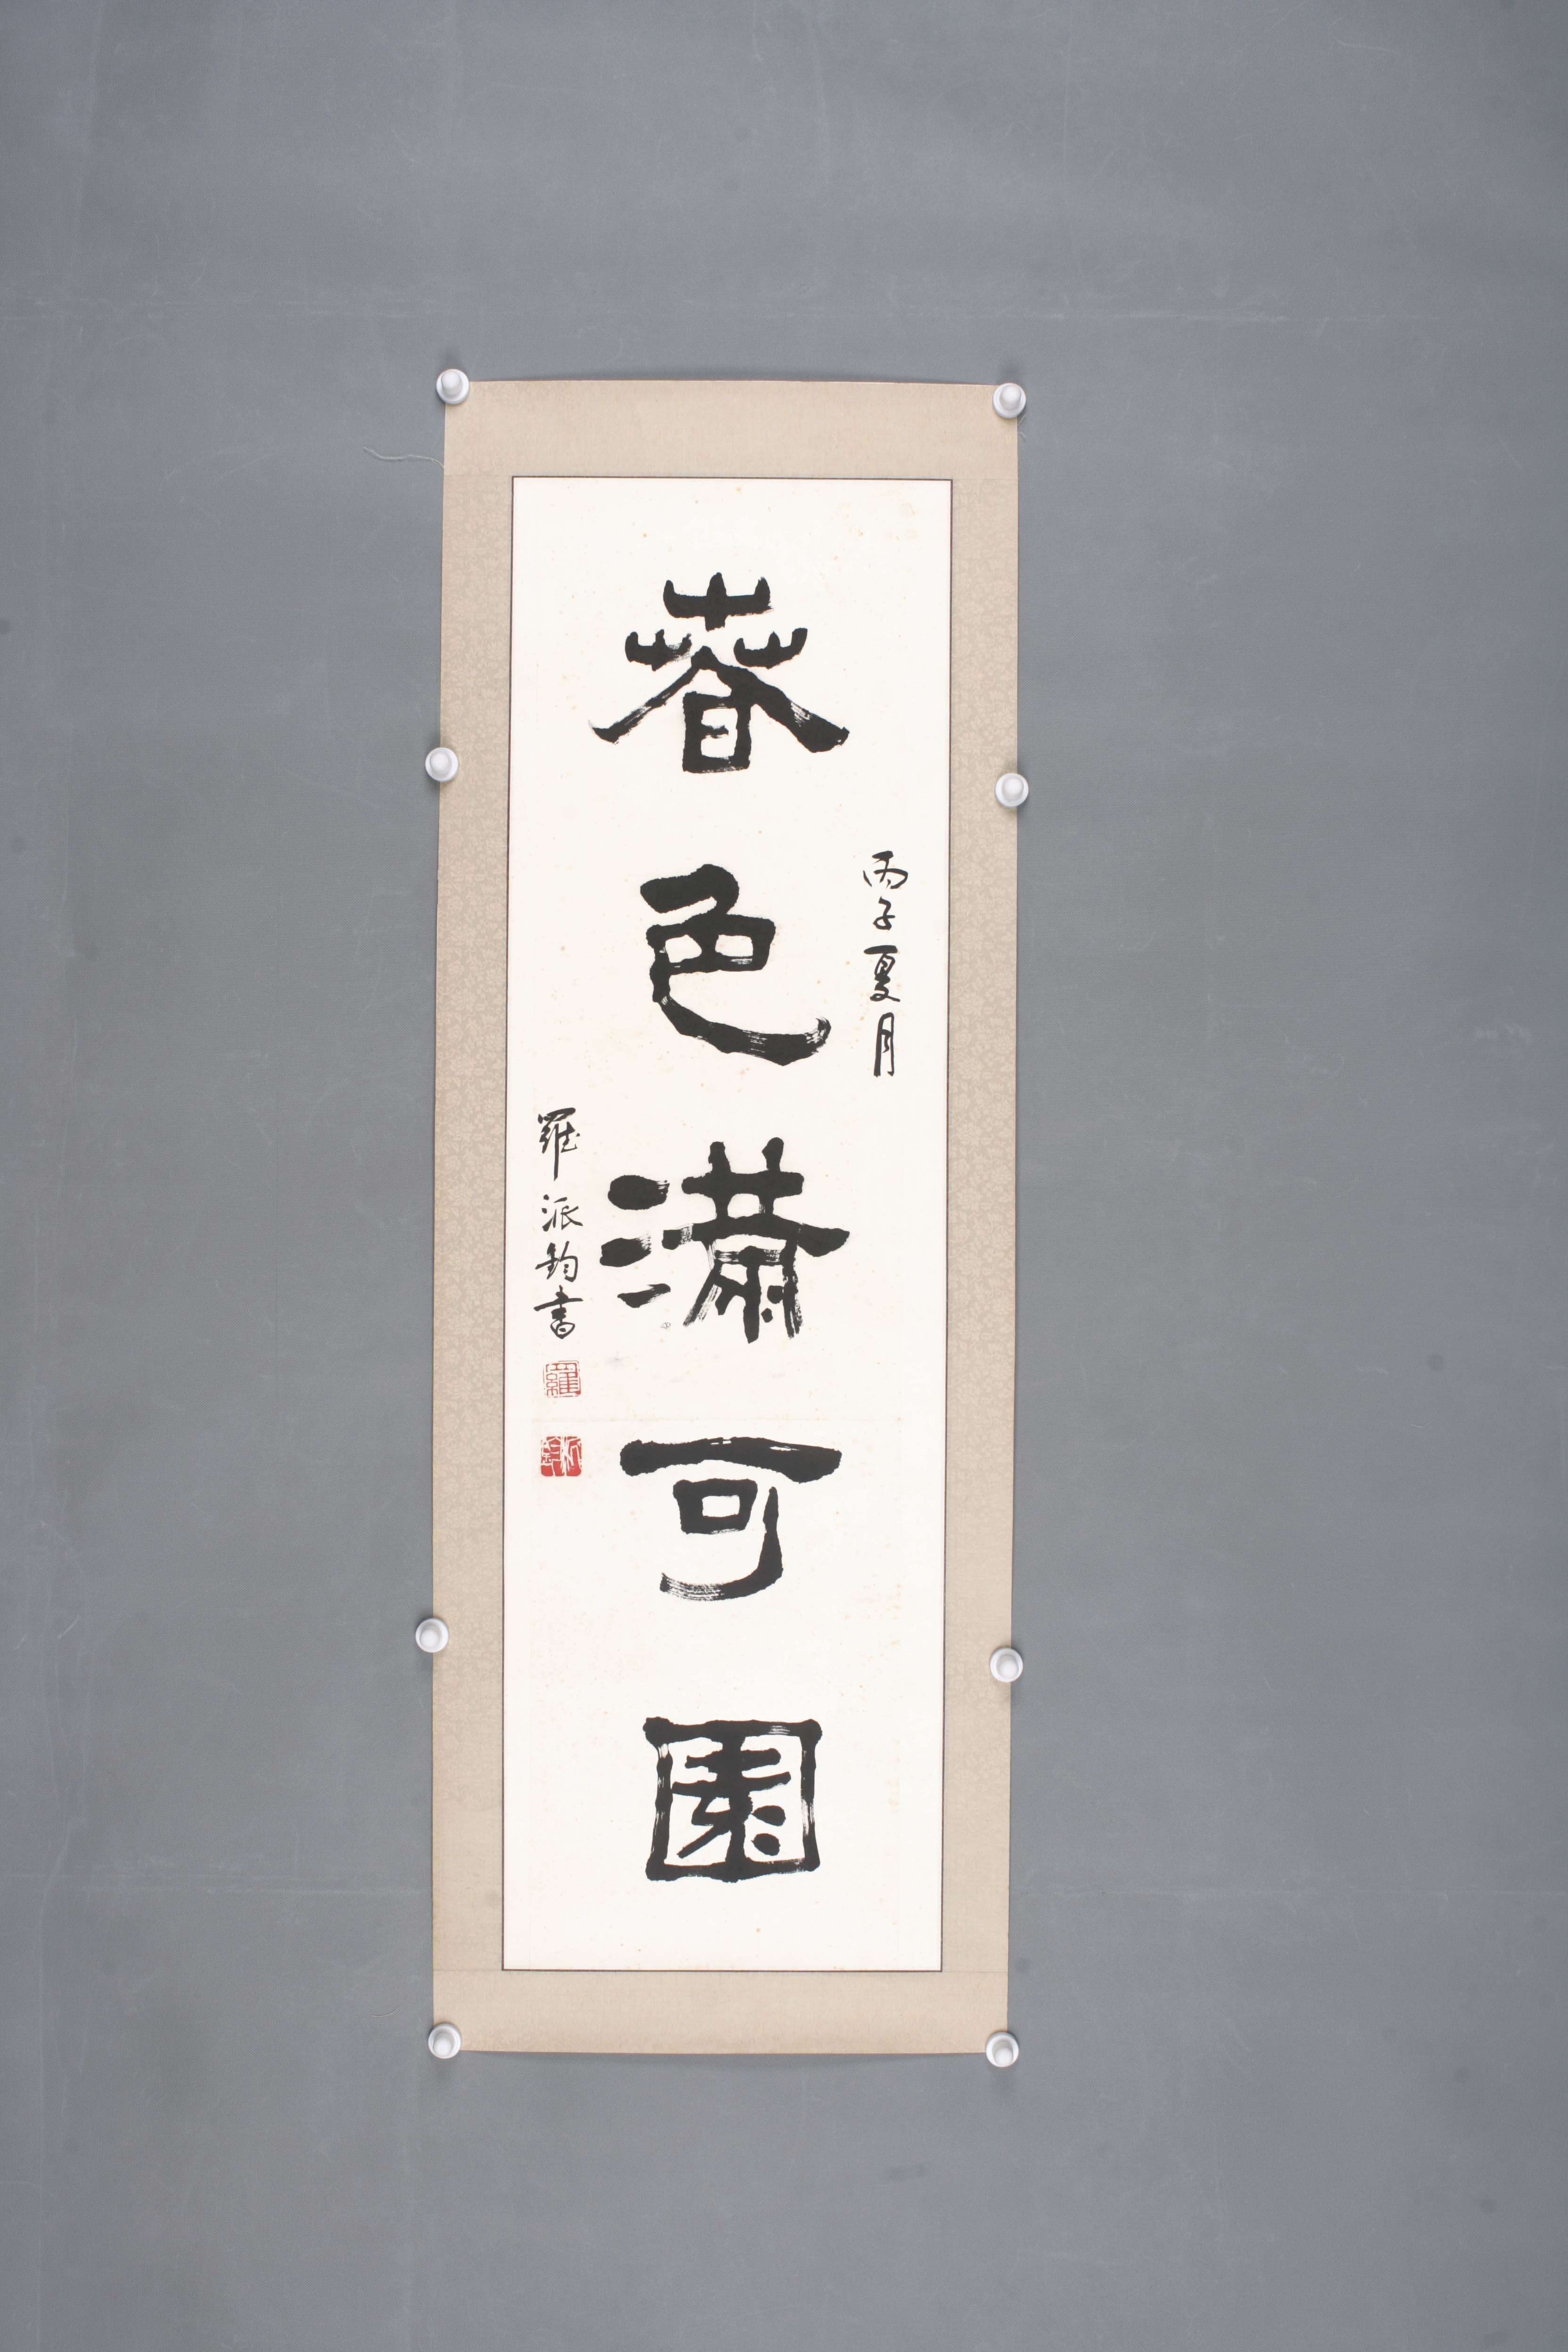 丙子夏月
春色滿可園
羅派鈞書
羅
派鈞